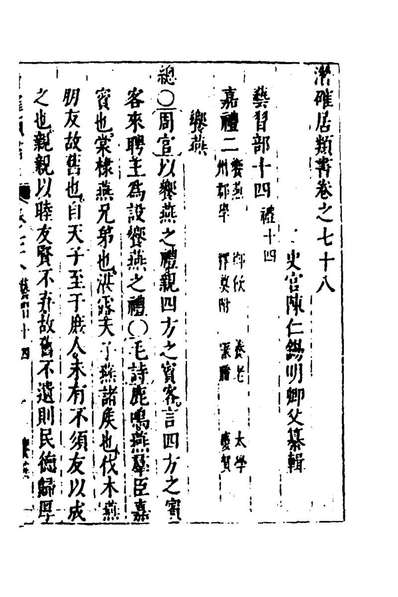 潛確居類書卷之七十八
史官陳仁錫明卿父纂輯
藝習部十四 禮十四
嘉禮二 饗燕 鄉飲 養老 太學
州郡學 釋奠附 慶賀
饗燕
總〇周官以饗燕之禮親四方之賓客言四方之賓
客來聘主為設饗燕之禮〇毛詩鹿鳴燕羣臣嘉
賓也棠棣燕兄弟也湛露天子燕諸侯也伐木燕
朋友故舊也自天子至于庶人未有不須友以成
之也親親以睦友賢不弃故舊不遺則民德歸厚